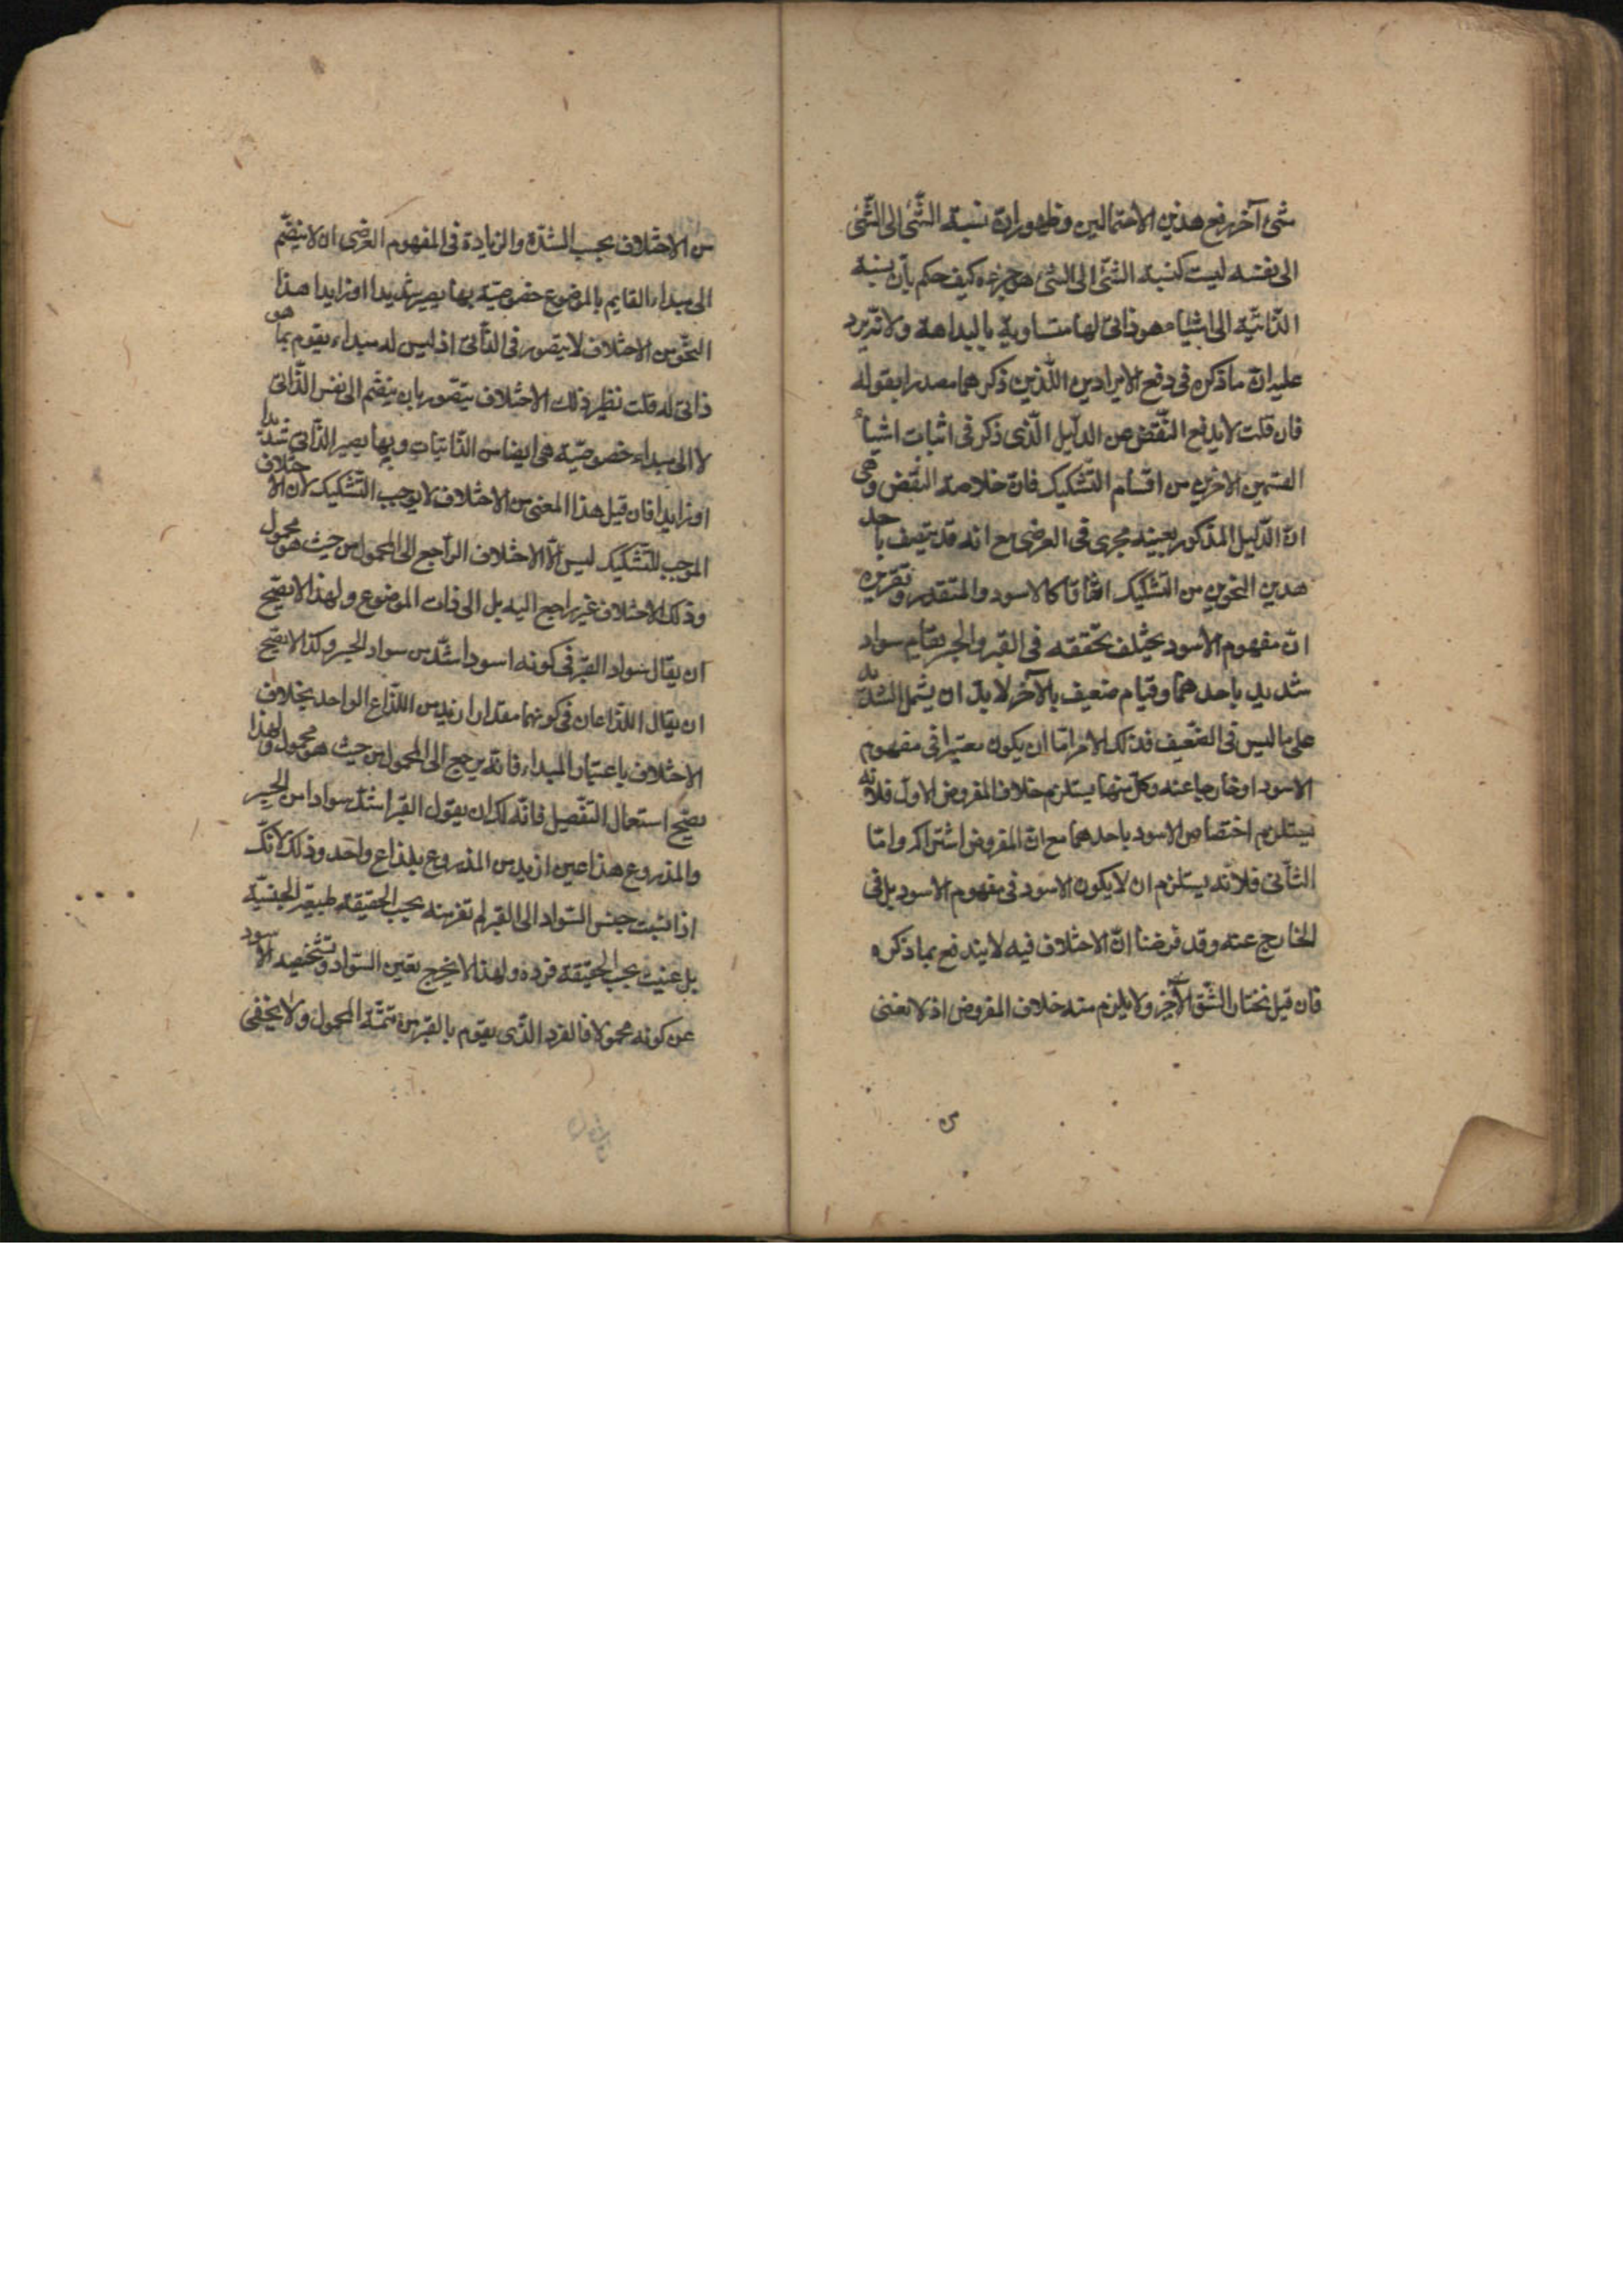 شئ آخر رفع هذين الاحتمالين وظهور ان نسبة الشئ الى الشئ
الى نفسه ليست كنسبة الشئ الى الشئ هو جزءه كيف حكم بان نسبة
الذاتية الى اشياء هو ذاتى لها متساوية بالبداهة ولانه يرد
عليه ان ما ذكره فى دفع الايرادين اللذين ذكرهما مصدرا بقوله
فان قلت لا يدفع النقض عن الدليل الذى ذكر فى اثبات اشياء
القسمين الاخرين من اقسام التشكيك فان خلاصة النقض وهى
ان الدليل المذكور بعينه يجرى فى العرضى مع انه قد يتصف باحد
هذين النحوين من التشكيك اتفاقا كالاسود والمتقدر وتقريره
ان مفهوم الاسود يختلف تحققه فى القير والحبر بقيام سواد
شديد باحدهما وقيام ضعيف بالآخر لا بد ان يشمل الشديد
على ما ليس فى الضعيف فذلك الامر اما ان يكون معتبرا فى مفهوم
الاسود او خارجا عنه وكل منهما يستلزم خلاف المفروض الاول فلانه
يستلزم اختصاص الاسود باحدهما مع ان المفروض اشتراكه واما
الثانى فلانه يستلزم ان لا يكون الاسود فى مفهوم الاسود بل فى
الخارج عنه وقد فرضنا ان الاختلاف فيه لا يندفع بما ذكره
فان قيل نختار الشق الآخر ولا يلزم منه خلاف المفروض اذ لا نعنى
من الاختلاف بحسب الشدة والزيادة فى المفهوم العرضى ان لا ينضم
الى مبداء القايم بالموضوع خصوصية بها يصير شديدا او زايدا هذا
النحو من الاختلاف لا يتصور فى الذاتى اذ ليس له مبداء يقوم بما هو
ذاتى له قلت نظير ذلك الاختلاف يتصور بان ينضم الى نفس الذاتى
لا الى مبداء خصوصية هى ايضا من الذاتيات وبها يصير الذاتى شديدا
او زايدا فان قيل هذا المعنى من الاختلاف لا يوجب التشكيك لان الاختلاف
الموجب للتشكيك ليس الا الاختلاف الراجع الى المحمول من حيث هو محمول
وذلك الاختلاف غير راجع اليه بل الى ذات الموضوع ولهذا لا يصح
ان يقال سواد القير فى كونه اسود اشد من سواد الحبر وكذا لا يصح
ان يقال الذراعان فى كونهما مقدارا ازيد من الذراع الواحد بخلاف
الاختلاف باعتبار المبداء فانه يرجع الى المحمول من حيث هو محمول ولهذا
يصح استعمال التفضيل فانه لك ان يقول القير اشد سوادا من الحبر
والمذروع هذا عين ازيد من المذروع بذراع واحد وذلك لانك
اذا نسبت جنس السواد الى القير لم تغرينه بحسب الحقيقة طبيعة الجنسية
بل عنيت بحسب الحقيقة فرده ولهذا لا يخرج تعين السواد وتشخصه الاسود
عن كونه محمولا فالفرد الذى يقوم بالقير من تتمة المحمول ولا يخفى